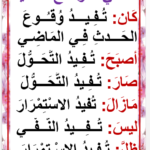 كَان: تُـفـيـدُ وُقـوعَ
الحَـدثِ فِي المَـاضِي
أصبَحَ: تُفِيدُ التَّحَـوُّل
صَارَ: تُـفِيدُ التَّحَـوُّلَ
مَازَالَ: تُفيدُ الاستِمْرَارَ
ليسَ: تُـفـيدُ النَّـفْـيَ
ظَلَّ: تُفِيدُ الاسْتِمْرَارَ